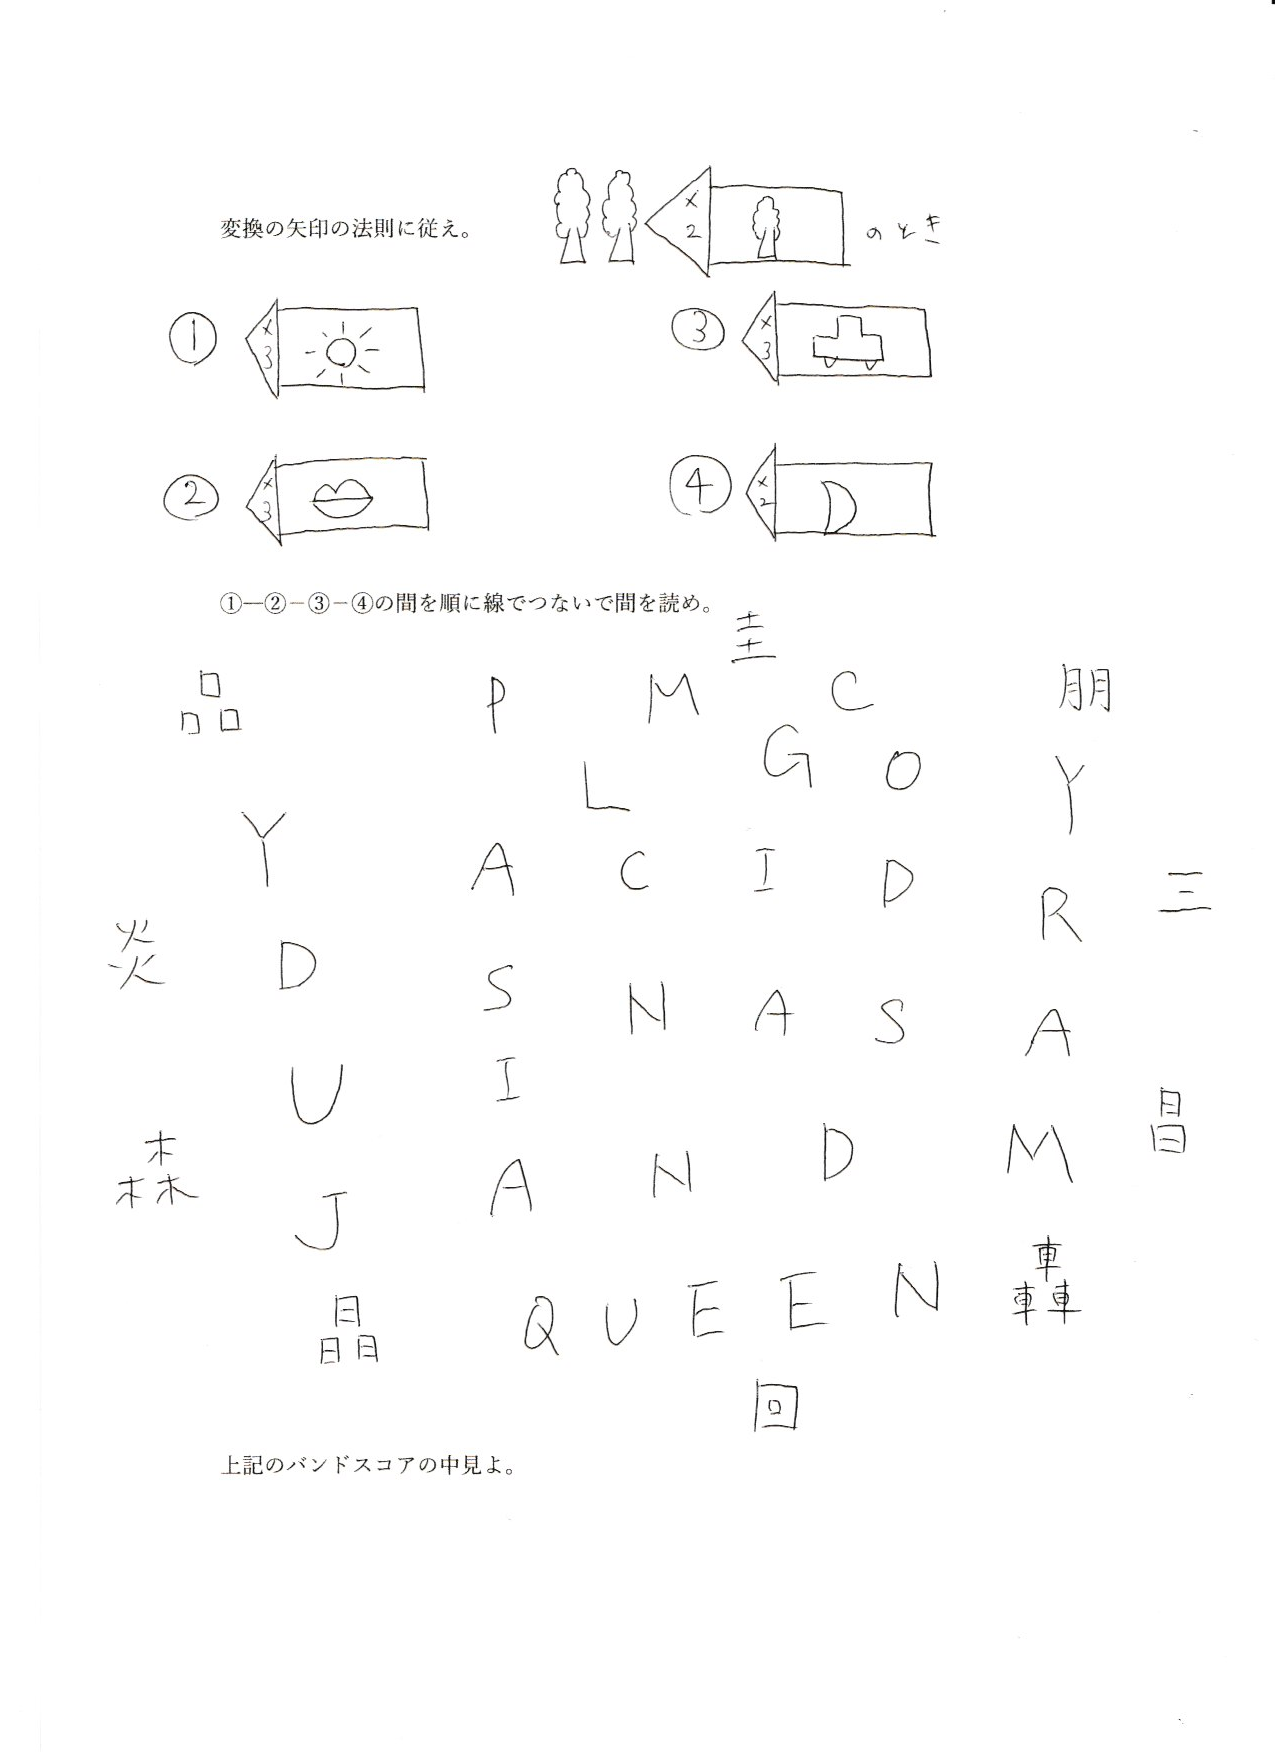 変換の矢印の法則に従え。
×
2
のとき
①
×
3
③
×
3
②
×
3
④
×
2
①―②－③－④の間を順に線でつないで間を読め。
圭
品 P M C 朋
L G O Y
Y A C I D R 三
炎 D S N A S A
U I
森 J A N D M 昌
晶 Q U E E N 轟
回
上記のバンドスコアの中見よ。